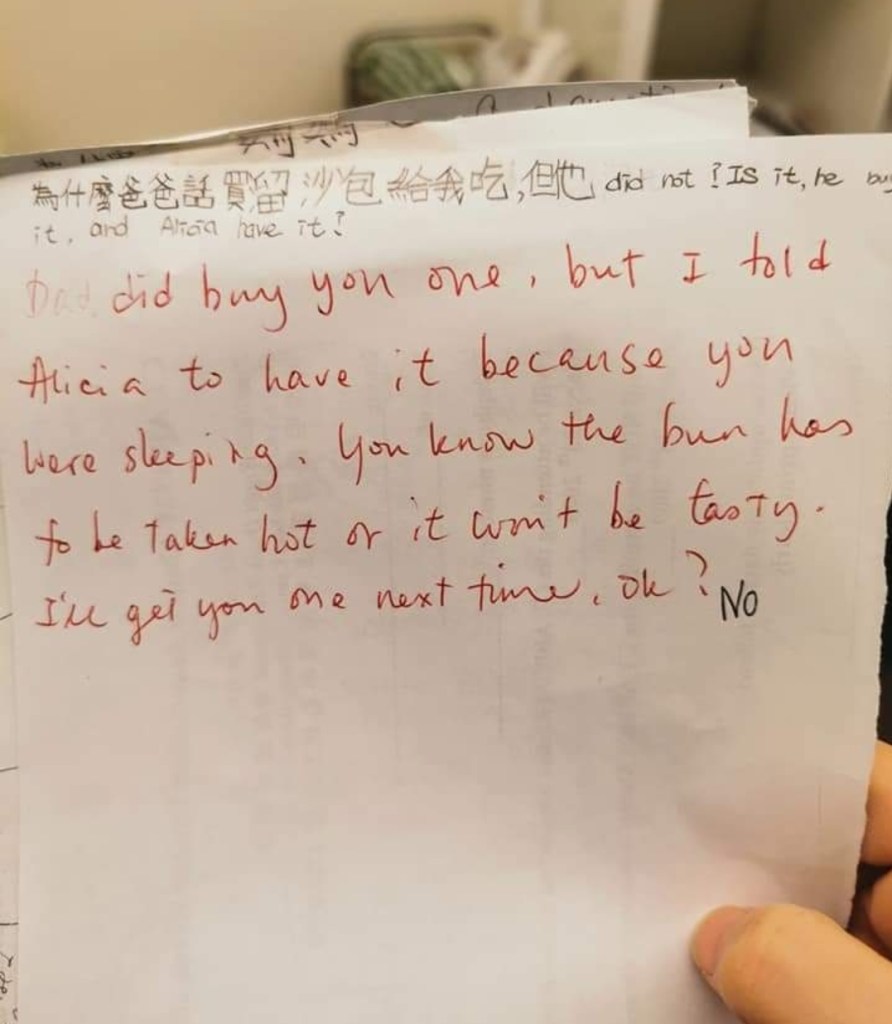 為什麼爸爸話買留沙包給我吃,但他 did not? IS it, he
it, and Alicia have it?
Dad did buy you one, but I told
Alicia to have it because you
were sleeping. You know the bun has
to be taken hot or it won't be tasty.
I'll get you one next time, ok? No